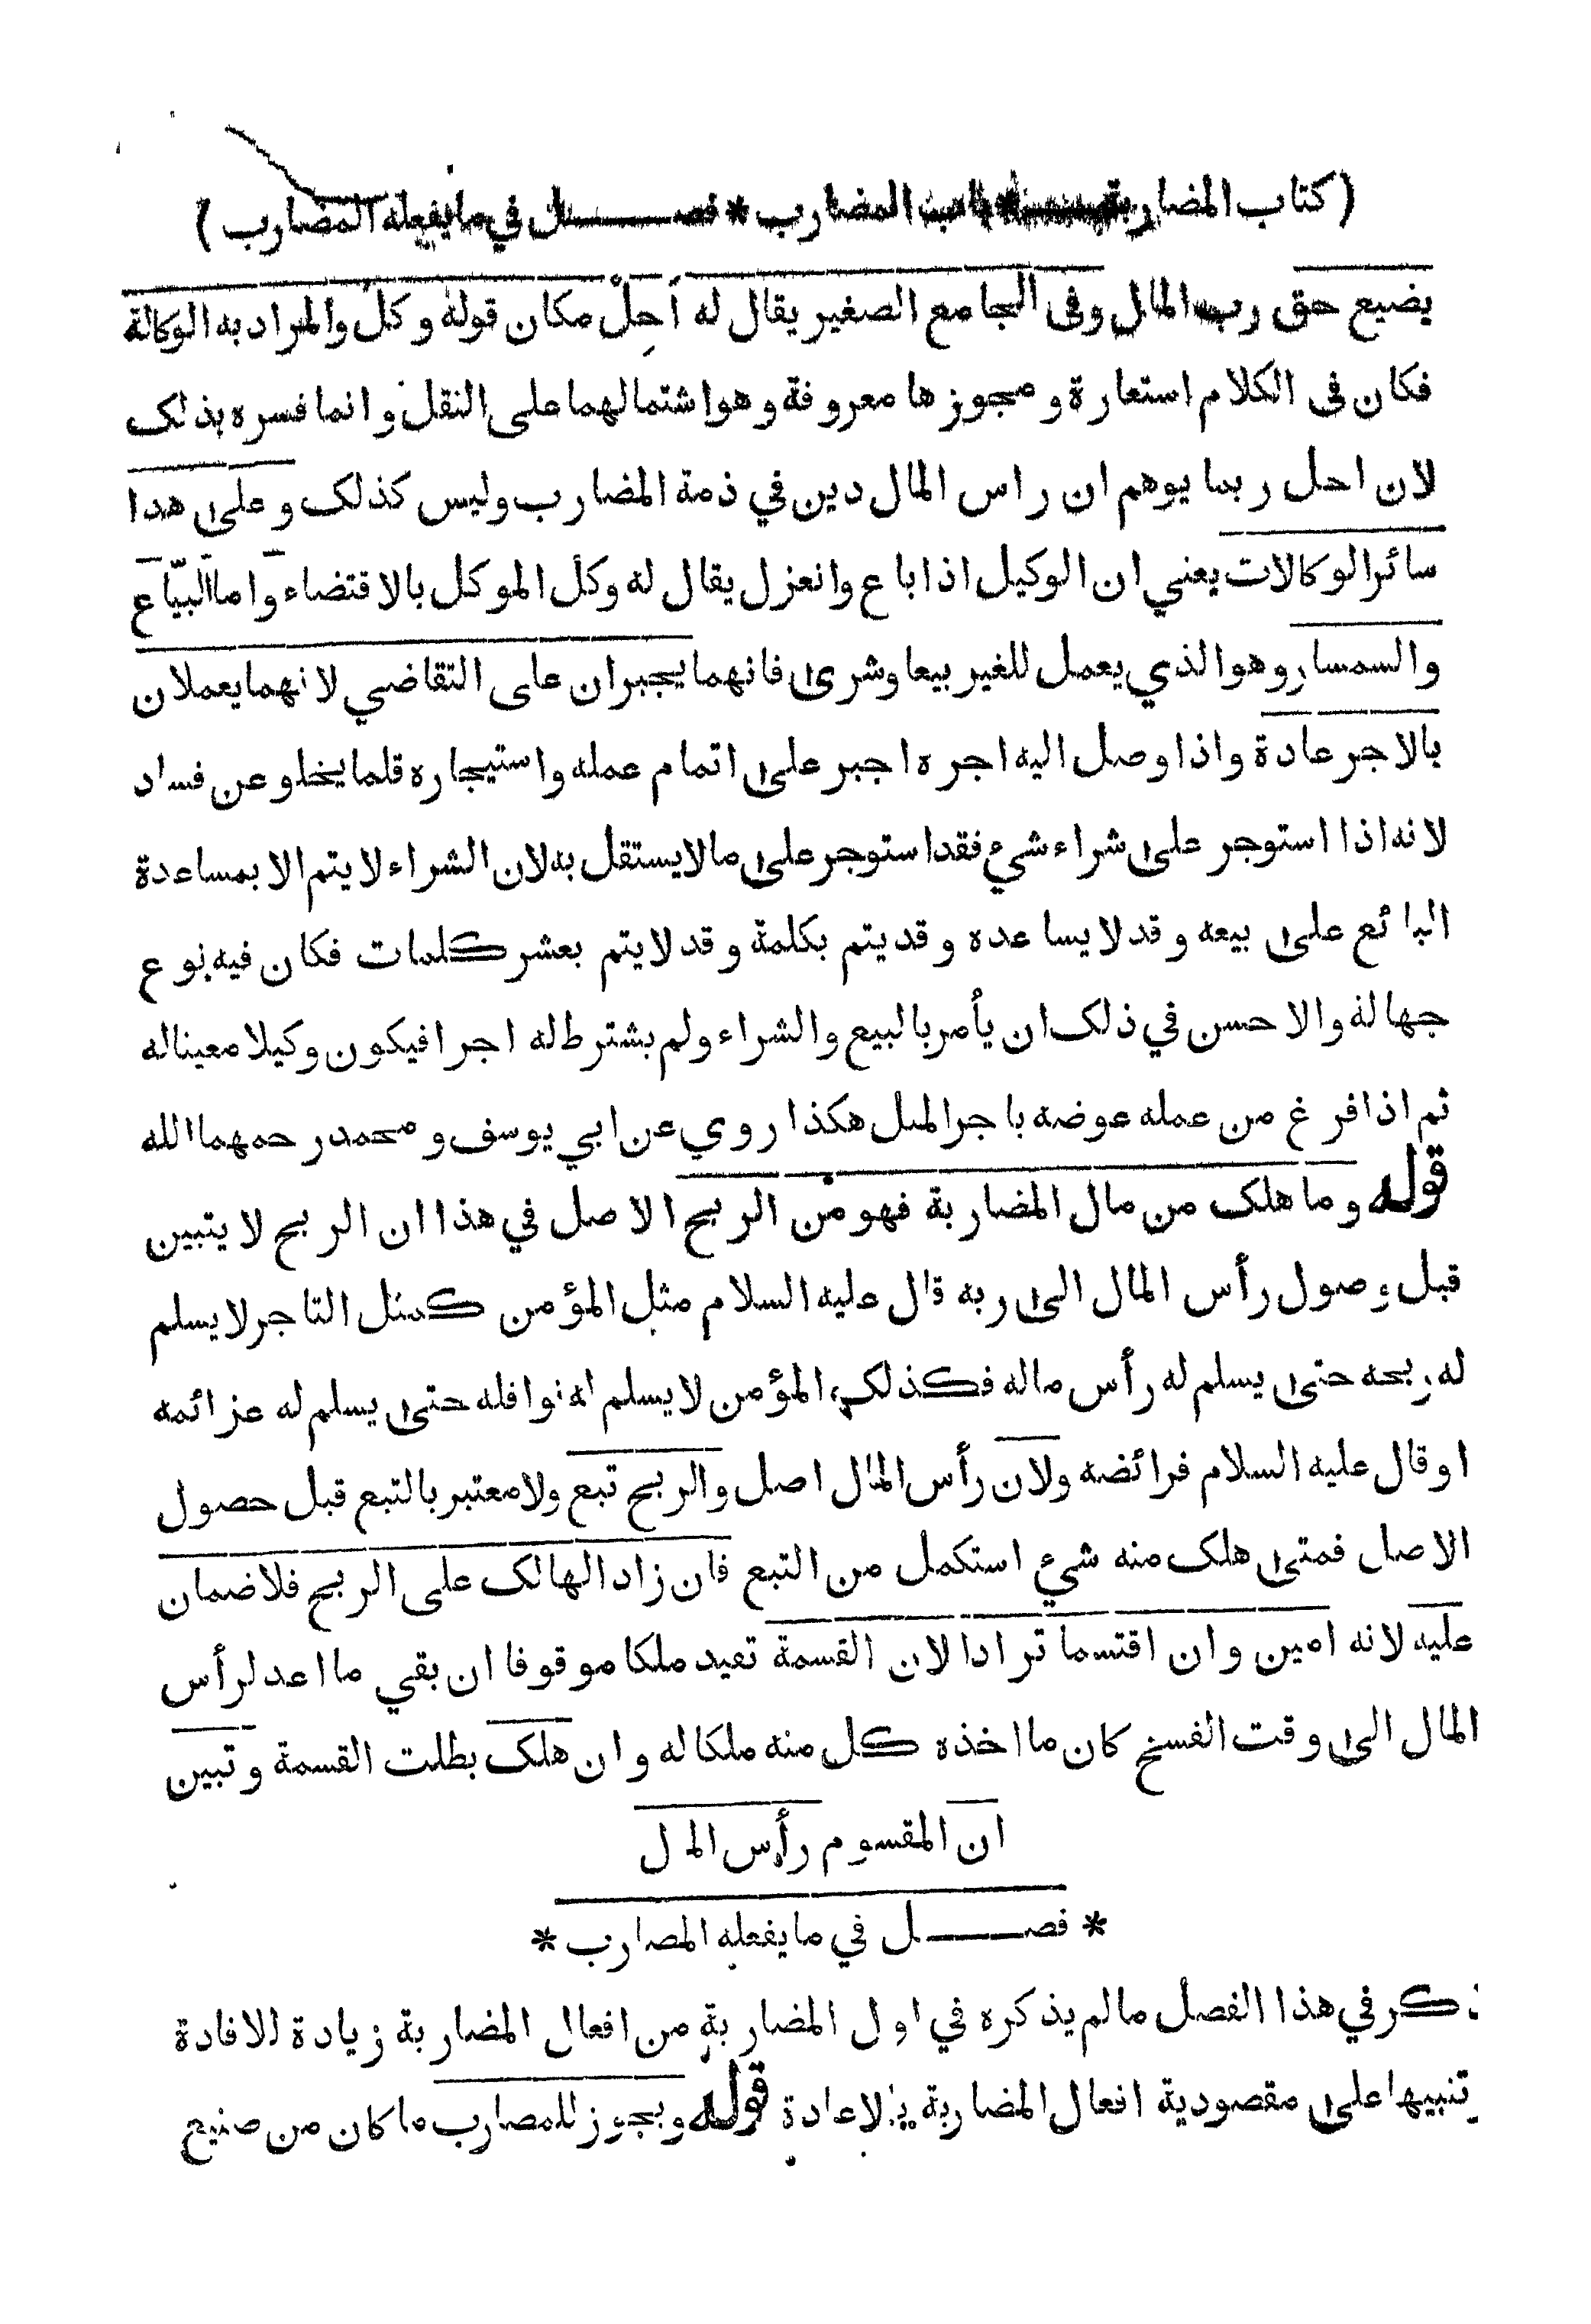 ( كتاب المضاربة المضارب * فصل في ما يفعله المضارب )
يضيع حق رب المال وفى الجامع الصغير يقال له اَحِلْ مكان قوله وكل والمراد به الوكالة
فكان فى الكلام استعارة و مجوزها معروفة وهو اشتمالهما على النقل وانما فسره بذلك
لان احل ربما يوهم ان راس المال دين في ذمة المضارب وليس كذلك وعلى هدا
سائر الوكالات يعني ان الوكيل اذا باع وانعزل يقال له وكل الموكل بالاقتضاء واما البيّاع
والسمسار وهو الذي يعمل للغير بيعا وشرى فانهما يجبران على التقاضي لانهما يعملان
بالاجر عادة واذا وصل اليه اجره اجبر على اتمام عمله واستيجاره قلما يخلو عن فساد
لانه اذا استوجر على شراء شيء فقد استوجر على مالا يستقل به لان الشراء لا يتم الا بمساعدة
البائع على بيعه وقد لا يساعده وقد يتم بكلمة وقد لا يتم بعشر كلمات فكان فيه نوع
جهالة والاحسن في ذلك ان يأمر بالبيع والشراء ولم يشترط له اجرا فيكون وكيلا معينا له
ثم اذا فرغ من عمله عوضه باجر المثل هكذا روي عن ابي يوسف و محمد رحمهما الله
قوله وما هلك من مال المضاربة فهو من الربح الاصل في هذا ان الربح لا يتبين
قبل وصول رأس المال الى ربه قال عليه السلام مثل المؤمن كمثل التاجر لا يسلم
له ربحه حتى يسلم له رأس ماله فكذلك المؤمن لا يسلم له نوافله حتى يسلم له عزائمه
او قال عليه السلام فرائضه ولان رأس المال اصل والربح تبع ولا معتبر بالتبع قبل حصول
الاصل فمتى هلك منه شيء استكمل من التبع فان زاد الهالك على الربح فلا ضمان
عليه لانه امين وان اقتسما ترادا لان القسمة تفيد ملكا موقوفا ان بقي ما اعد لرأس
المال الى وقت الفسخ كان ما اخذه كل منه ملكا له وان هلك بطلت القسمة وتبين
ان المقسوم رأس المال
* فصل في ما يفعله المضارب *
ذكر في هذا الفصل مالم يذكره في اول المضاربة من افعال المضاربة زيادة للافادة
وتنبيها على مقصودية افعال المضاربة بالاعادة قوله ويجوز للمضارب ما كان من صنيع